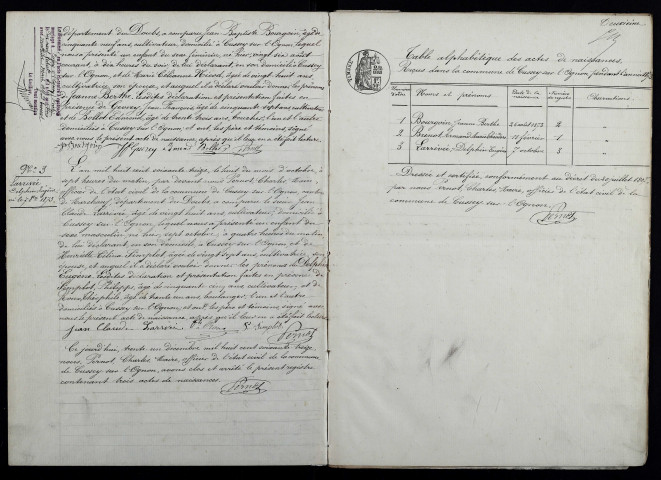 département du Doubs, a comparu Jean Baptiste Bourgoin, âgé de
cinquante neuf ans, cultivateur, domicilié à Cussey sur l'Ognon, lequel
nous a présenté un enfant du sexe féminin, né hier, vingt six août
courant, à dix heures du soir, de lui déclarant, en son domicile à Cussey
sur l'Ognon, et de Marie Célianne Nicod, âgée de vingt huit ans,
cultivatrice, son épouse, et auquel il a déclaré vouloir donner les prénoms
de Jeanne Berthe, lesdites déclaration et présentation faites en
présence de Jean François, âgé de cinquante sept ans, cultivateur
et de âgé de trente trois ans, tous
domiciliés à Cussey sur l'Ognon, et ont, les père et témoins signé
avec nous le présent acte de naissance, après que leur en a été fait lecture.
Bourgoin
Pernot
N° 3
Larrivée
Delphin Eugène
né le 7 8bre 1873
L'an mil huit cent soixante treize, le huit du mois d'octobre, à
sept heures du matin, par devant nous Pernot, Charles, Maire,
officier de l'état civil de la commune de Cussey sur l'Ognon, canton
de Marchaux, département du Doubs, a comparu le sieur Jean
Claude Larrivée, âgé de vingt huit ans, cultivateur, domicilié à
Cussey sur l'Ognon, lequel nous a présenté un enfant du
sexe masculin, né hier, sept octobre, à quatre heures du matin
de lui déclarant, en son domicile, à Cussey sur l'Ognon et de
Henriette Célina Simplot, âgée de vingt sept ans, cultivatrice, son
épouse, et auquel il a déclaré vouloir donner les prénoms de Delphin
Eugène, lesdites déclaration et présentation faites en présence de
Simplot, Philippe, âgé de cinquante cinq ans, cultivateur, et de
Théophile, âgé de trente ans, boulanger, l'un et l'autre
domiciliés à Cussey sur l'Ognon, et ont, les père et témoins signé avec
nous le présent acte de naissance, après que leur en a été fait lecture
Jean Claude Larrivée P. Simplot
Pernot
Ce jourd'hui, trente un décembre, mil huit cent soixante treize,
nous, Pernot, Charles, Maire, officier de l'état civil de la commune
de Cussey sur l'Ognon, avons clos et arrêté le présent registre
contenant trois actes de naissances.
Pernot
Deuxième
Table alphabétique des actes de naissances,
Reçus dans la commune de Cussey sur l'Ognon pendant l'année 1873
Noms et prénoms Date de la naissance Numéros du registre Observations
1 Bourgoin, Jeanne Berthe 26 août 1873 2
2 février 1
3 Larrivée, Delphin Eugène 7 octobre 3
Dressée et certifiée, conformément au décret du 20 juillet 1807,
par nous Pernot, Charles, Maire, officier de l'état civil de la
commune de Cussey sur l'Ognon.
Pernot